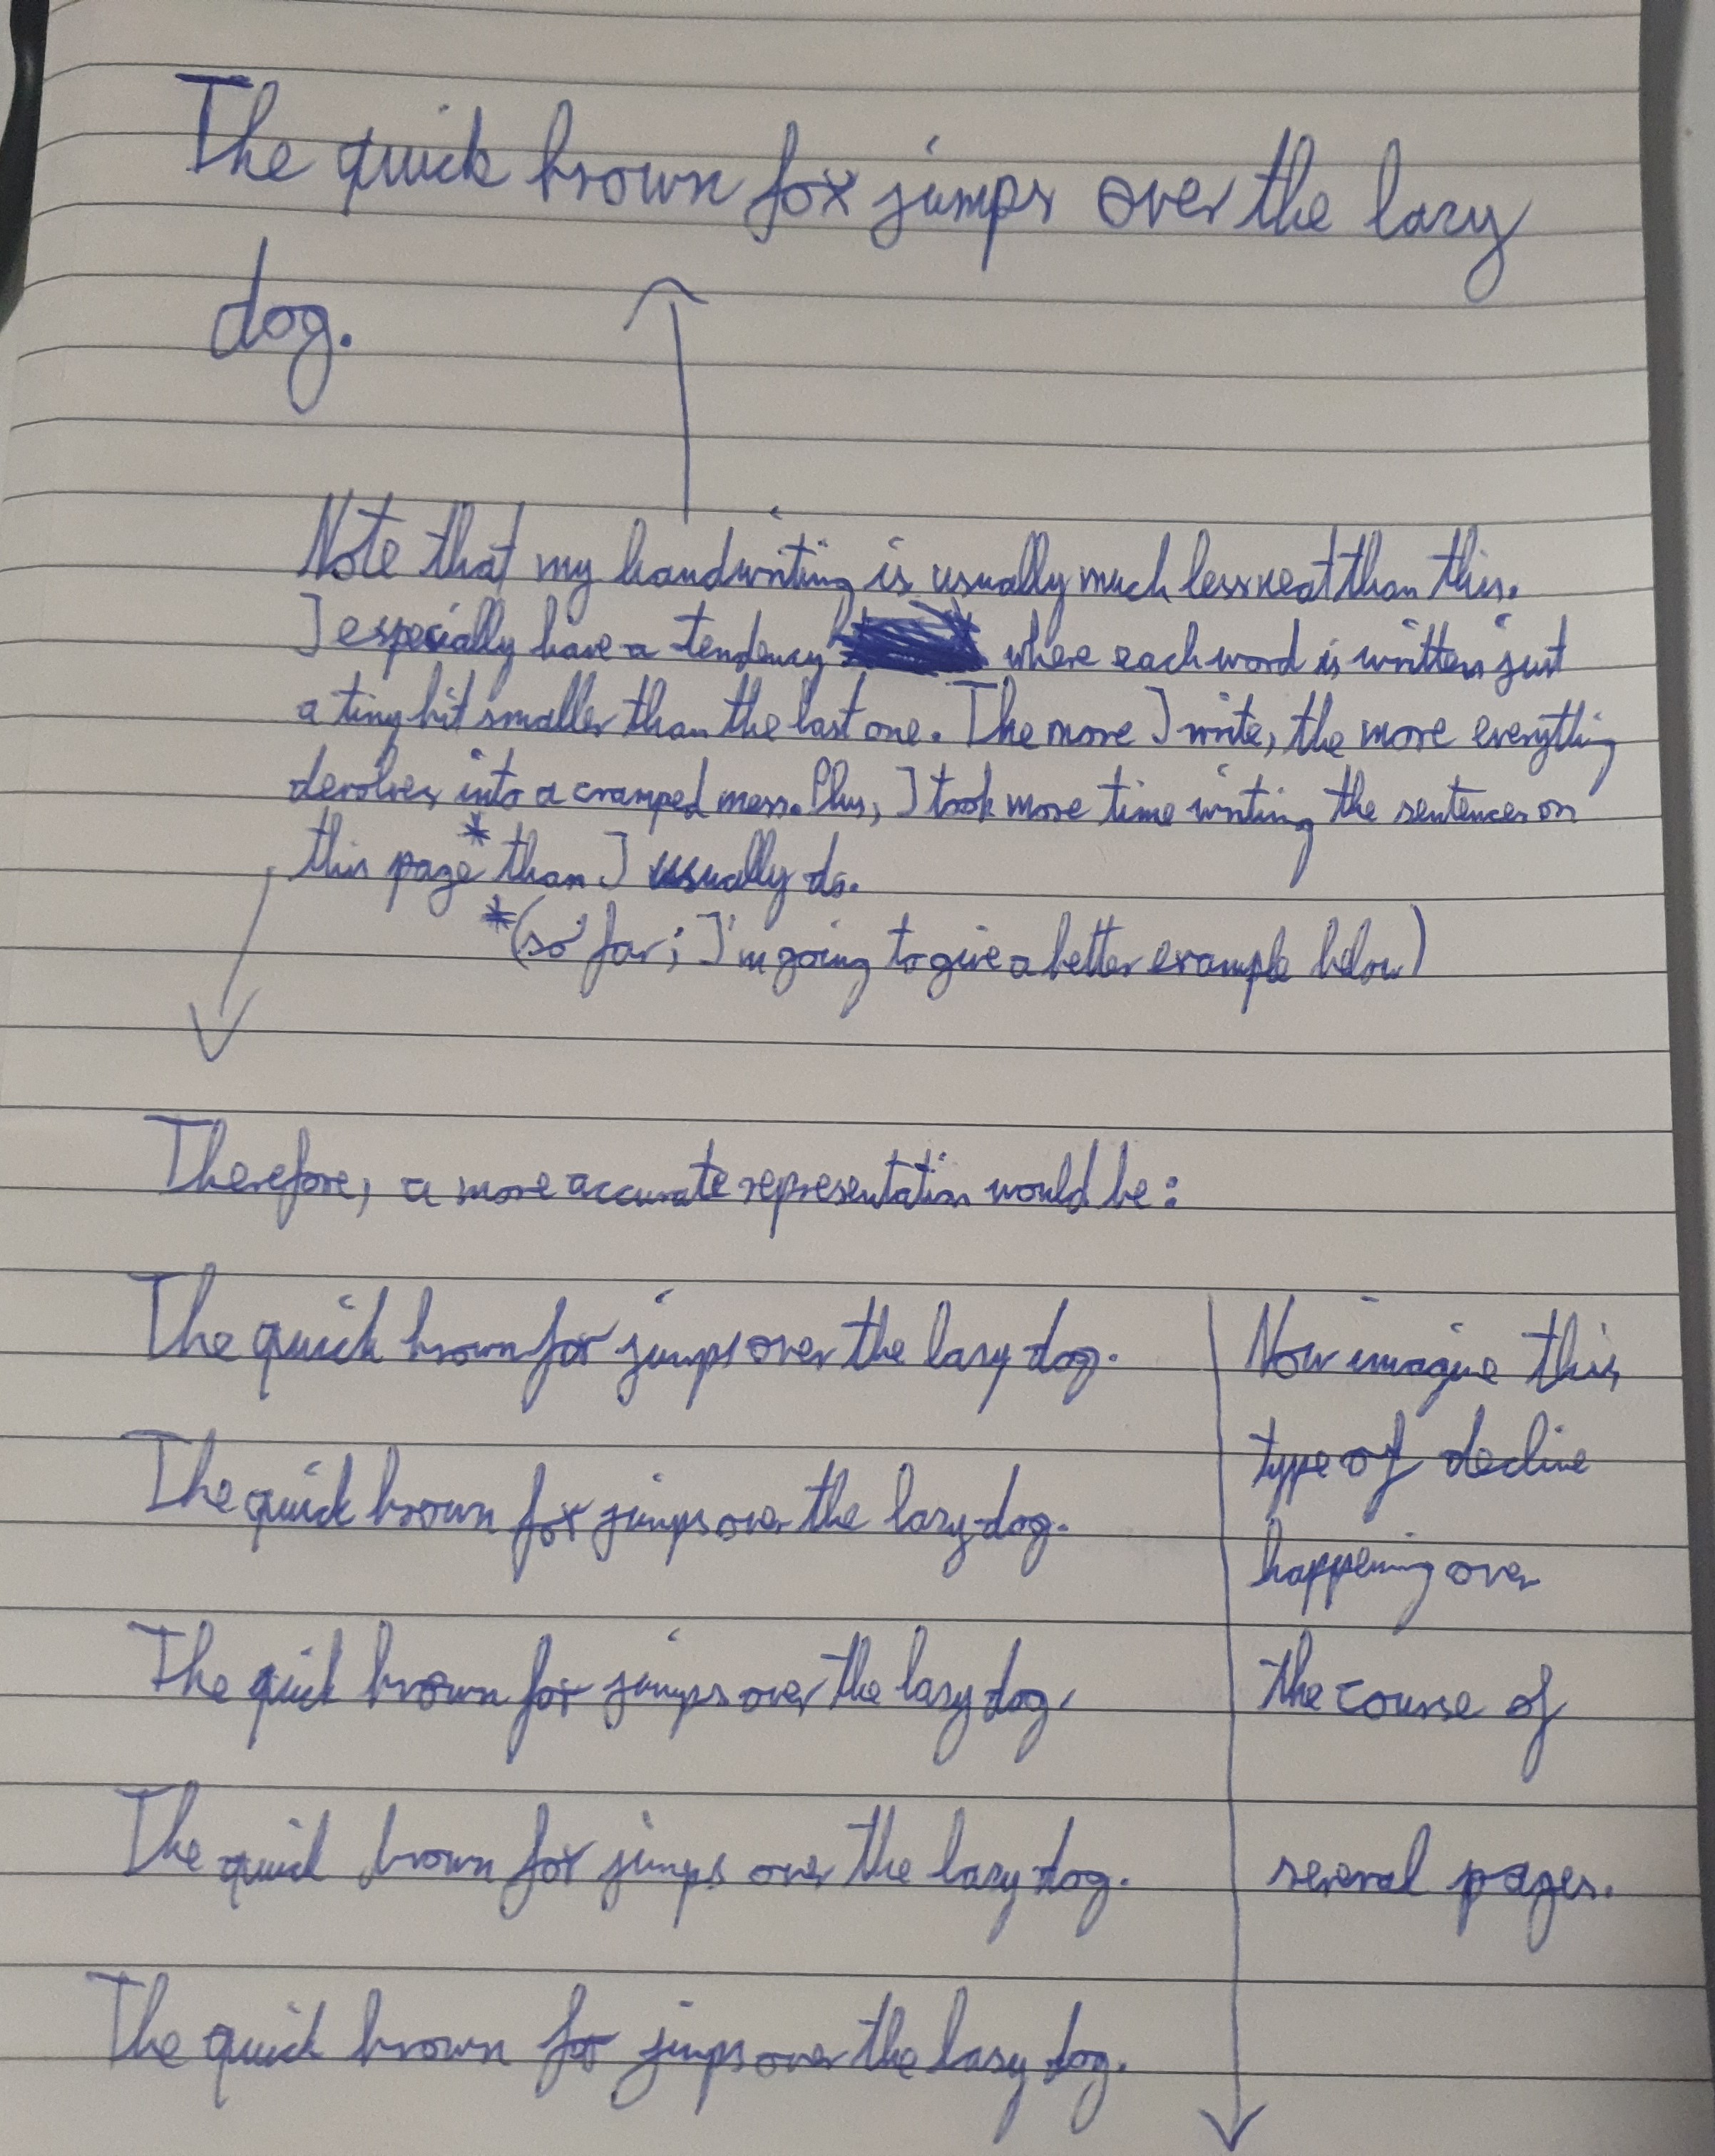 The quick brown fox jumps over the lazy
dog.
Note that my handwriting is usually much less neat than this.
I especially have a tendency where each word is written just
a tiny bit smaller than the last one. The more I write, the more everything
devolves into a cramped mess. Plus, I took more time writing the sentences on
this page* than I usually do.
*(so far; I'm going to give a better example below)
Therefore, a more accurate representation would be:
The quick brown fox jumps over the lazy dog.
The quick brown fox jumps over the lazy dog.
The quick brown fox jumps over the lazy dog.
The quick brown fox jumps over the lazy dog.
The quick brown fox jumps over the lazy dog.
Now imagine this
type of decline
happening over
the course of
several pages.